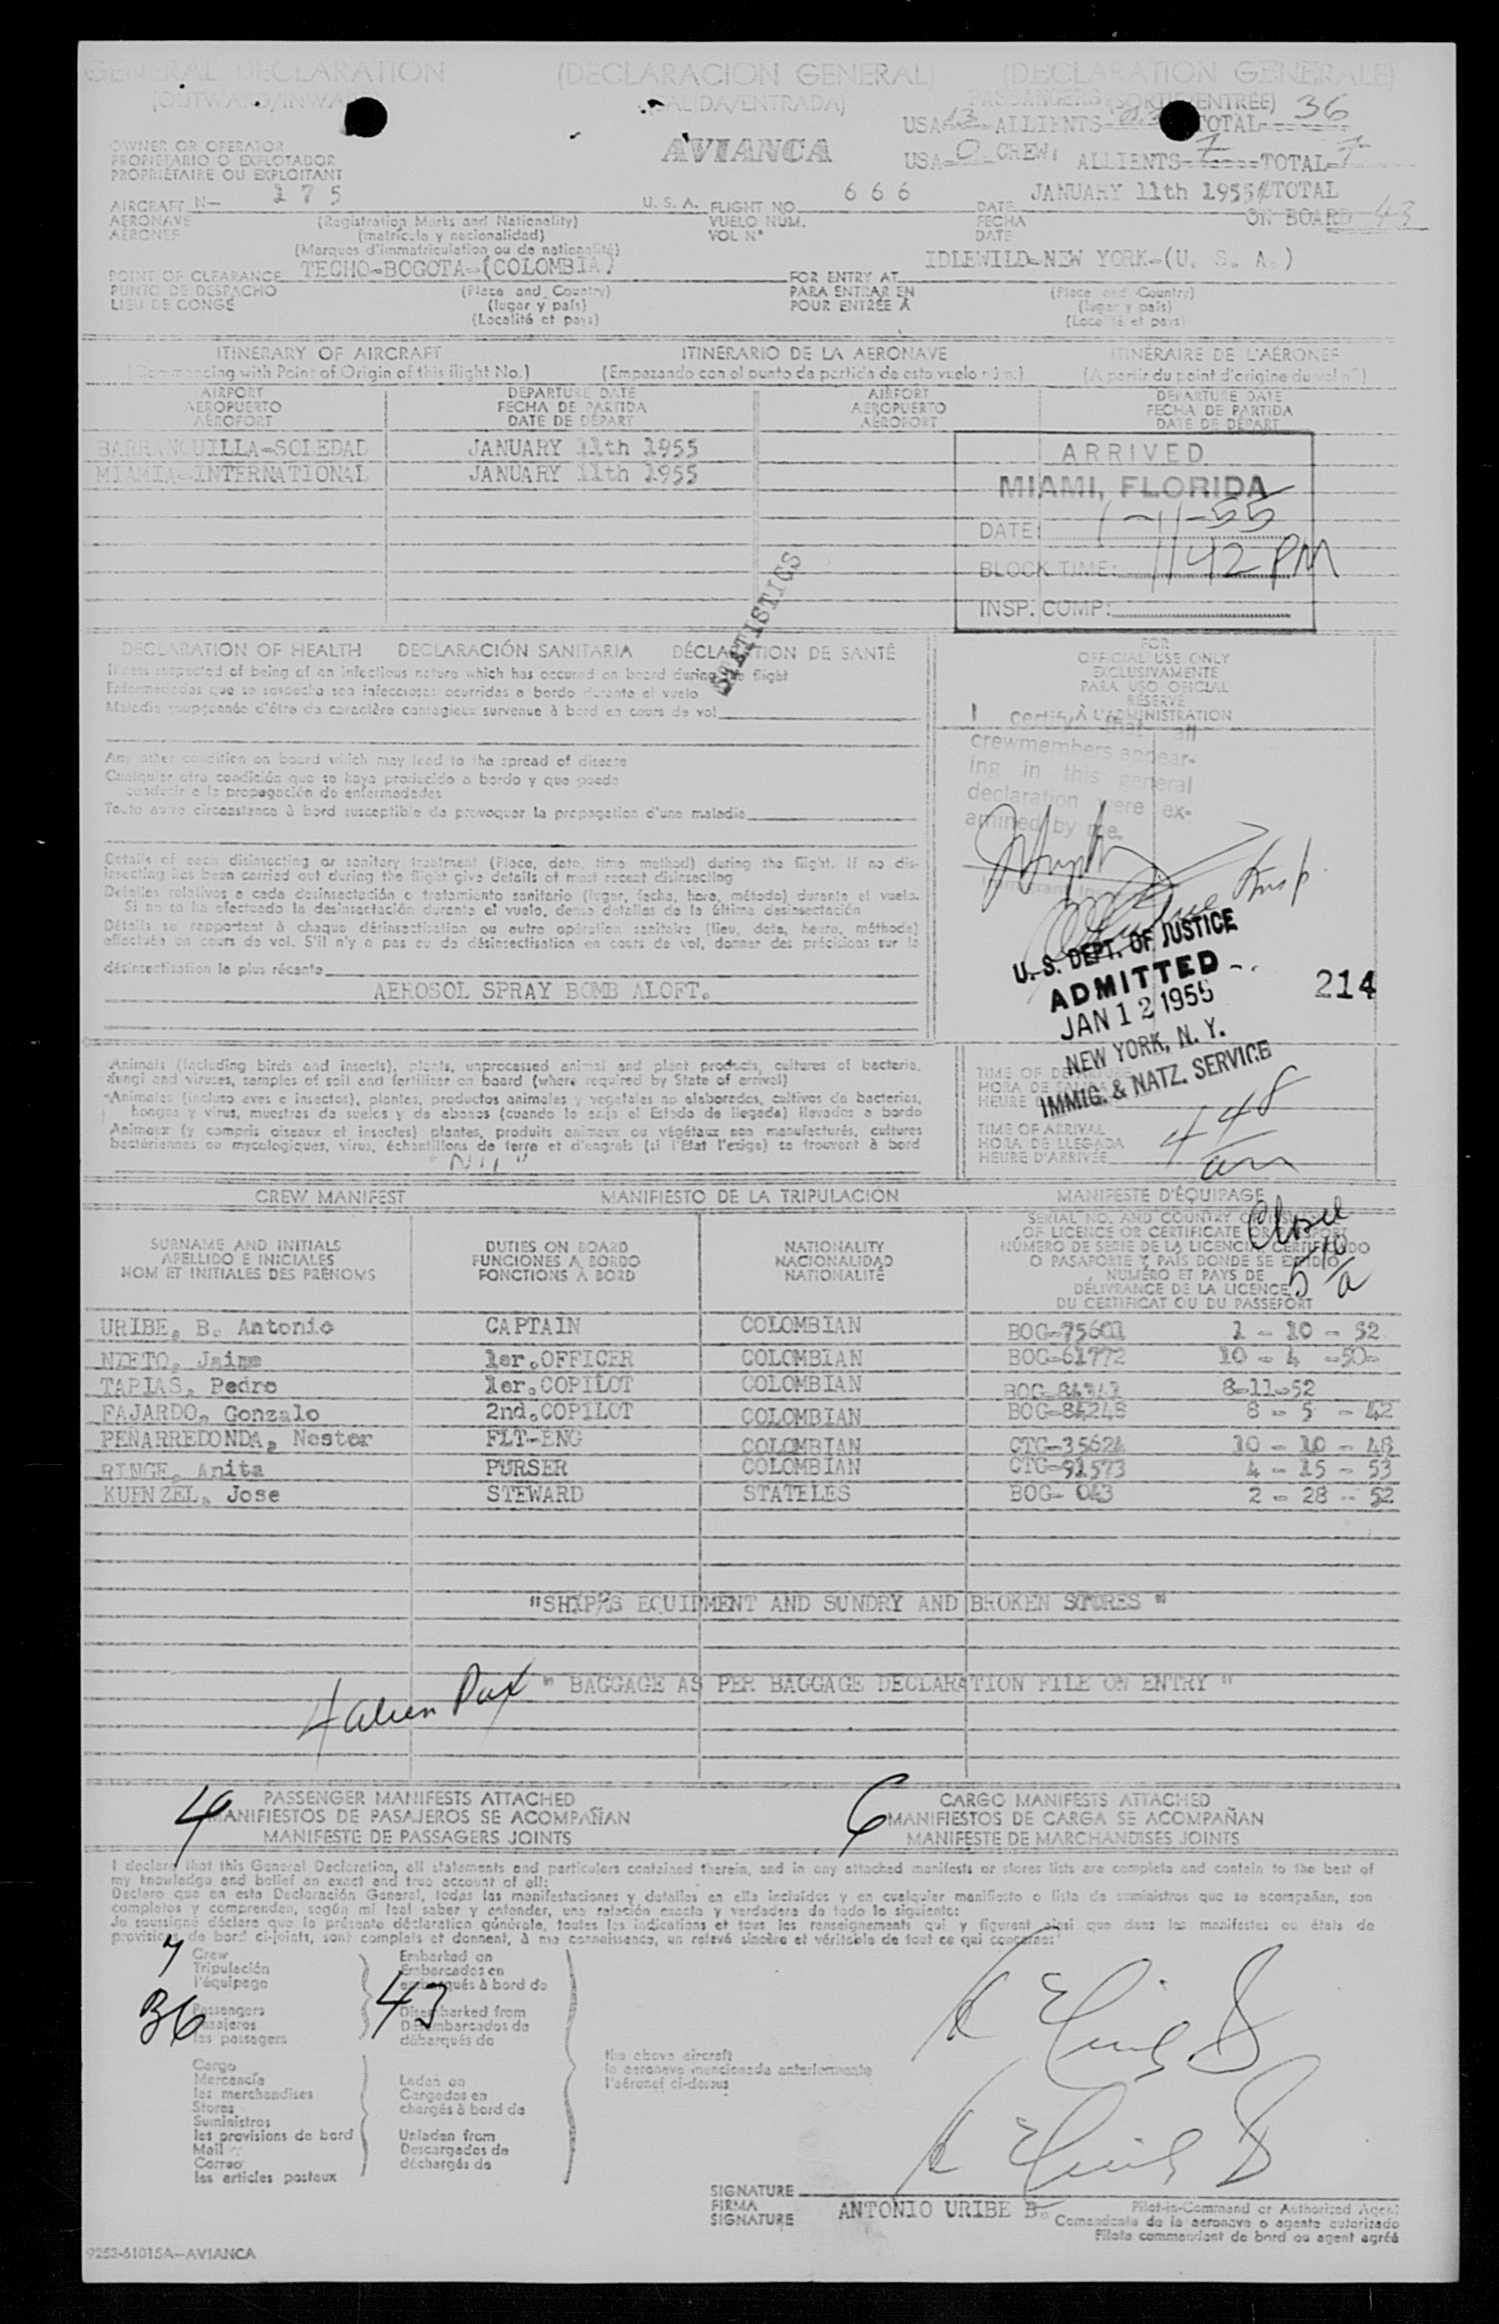 GENERAL DECLARATION (DECLARACION GENERAL) (DECLARATION GENERALE)
(OUTWARD/INWARD) (SALIDA/ENTRADA) (SORTIE/ENTRÉE)
PASSANGERS 36
USA 13 ALLIENTS TOTAL
OWNER OR OPERATOR
PROPIETARIO O EXPLOTADOR
PROPRIÉTAIRE OU EXPLOITANT
AVIANCA
USA-0-CREW: ALLIENTS-7 TOTAL-7
AIRCRAFT N- 175 U. S. A. FLIGHT NO. 666 DATE JANUARY 11th 1955 TOTAL
AERONAVE (Registration Marks and Nationality) VUELO NUM. FECHA ON BOARD 43
AÉRONEF (matrícula y nacionalidad) VOL N° DATE
(Marques d'immatriculation ou de nationalité)
POINT OF CLEARANCE TECHO-BOGOTA-(COLOMBIA) FOR ENTRY AT IDLEWILD-NEW YORK-(U. S. A.)
PUNTO DE DESPACHO (Place and Country) PARA ENTRAR EN (Place and Country)
LIEU DE CONGÉ (lugar y país) POUR ENTRÉE À (lugar y país)
(Localité et pays) (Localité et pays)
ITINERARY OF AIRCRAFT ITINERARIO DE LA AERONAVE ITINÉRAIRE DE L'AÉRONEF
(Commencing with Point of Origin of this flight No.) (Empezando con el punto de partida de este vuelo núm.) (A partir du point d'origine du vol n°)
AIRPORT DEPARTURE DATE AIRPORT DEPARTURE DATE
AEROPUERTO FECHA DE PARTIDA AEROPUERTO FECHA DE PARTIDA
AÉROPORT DATE DE DÉPART AÉROPORT DATE DE DÉPART
BARRANQUILLA-SOLEDAD JANUARY 11th 1955
MIAMIA-INTERNATIONAL JANUARY 11th 1955
ARRIVED
MIAMI, FLORIDA
DATE: 1-11-55
BLOCK TIME: 1142 PM
INSP. COMP:
STATISTICS
DECLARATION OF HEALTH DECLARACIÓN SANITARIA DÉCLARATION DE SANTÉ
Illness suspected of being of an infectious nature which has occured on board during the flight
Enfermedades que se sospecha sean infecciosas ocurridas a bordo durante el vuelo
Maladie soupçonnée d'être de caractère contagieux survenue à bord en cours de vol
FOR
OFFICIAL USE ONLY
EXCLUSIVAMENTE
PARA USO OFICIAL
RÉSERVÉ
À L'ADMINISTRATION
I certify that all
crewmembers appear-
ing in this general
declaration were ex-
amined by me.
Any other condition on board which may lead to the spread of disease
Cualquier otra condición que se haya producido a bordo y que pueda
conducir a la propagación de enfermedades
Toute autre circonstance à bord susceptible de provoquer la propagation d'une maladie
Details of each disinsecting or sanitary treatment (Place, date, time method) during the flight. If no dis-
insecting has been carried out during the flight give details of most recent disinsecting
Detalles relativos a cada desinsectación o tratamiento sanitario (lugar, fecha, hora, método) durante el vuelo.
Si no se ha efectuado la desinsectación durante el vuelo, dense detalles de la última desinsectación
Détails se rapportant à chaque désinsectisation ou autre opération sanitaire (lieu, date, heure, méthode)
effectuée en cours de vol. S'il n'y a pas eu de désinsectisation en cours de vol, donner des précisions sur la
désinsectisation la plus récente
AEROSOL SPRAY BOMB ALOFT.
Insp.
U. S. DEPT. OF JUSTICE
ADMITTED
JAN 12 1955
NEW YORK, N. Y.
IMMIG. & NATZ. SERVICE
214
Animals (including birds and insects), plants, unprocessed animal and plant products, cultures of bacteria,
fungi and viruses, samples of soil and fertiliser on board (where required by State of arrival)
Animales (incluso aves e insectos), plantas, productos animales y vegetales no elaborados, cultivos de bacterias,
hongos y virus, muestras de suelos y de abonos (cuando lo exija el Estado de llegada) llevados a bordo
Animaux (y compris oiseaux et insectes) plantes, produits animaux ou végétaux non manufacturés, cultures
bactériennes ou mycologiques, virus, échantillons de terre et d'engrais (si l'État l'exige) se trouvent à bord
"Nil"
TIME OF DEPARTURE
HORA DE SALIDA
HEURE
TIME OF ARRIVAL
HORA DE LLEGADA
HEURE D'ARRIVÉE
448
am
CREW MANIFEST MANIFIESTO DE LA TRIPULACIÓN MANIFESTE D'ÉQUIPAGE
SURNAME AND INITIALS DUTIES ON BOARD NATIONALITY
APELLIDO E INICIALES FUNCIONES A BORDO NACIONALIDAD
NOM ET INITIALES DES PRÉNOMS FONCTIONS À BORD NATIONALITÉ
SERIAL NO. AND COUNTRY OF ISSUE
OF LICENCE OR CERTIFICATE OR PASSPORT
NÚMERO DE SERIE DE LA LICENCIA, CERTIFICADO
O PASAPORTE Y PAÍS DONDE SE EXPIDIÓ
NUMÉRO ET PAYS DE
DÉLIVRANCE DE LA LICENCE
DU CERTIFICAT OU DU PASSEPORT
URIBE, B. Antonio CAPTAIN COLOMBIAN BOG-75601 1 - 10 - 52
NIETO, Jaime 1er.OFFICER COLOMBIAN BOG-61772 10 - 4 -50-
TAPIAS, Pedro 1er.COPILOT COLOMBIAN BOG-84343 8-11-52
FAJARDO, Gonzalo 2nd.COPILOT COLOMBIAN BOG-84248 8 - 5 - 42
PEÑARREDONDA, Nestor FLT-ENG COLOMBIAN CTG-35624 10 - 10 - 48
RINGE, Anita PURSER COLOMBIAN CTG-91573 4 - 15 - 53
KUENZEL, Jose STEWARD STATELES BOG- 043 2 - 28 - 52
"SHIP'S EQUIPMENT AND SUNDRY AND BROKEN STORES "
" BAGGAGE AS PER BAGGAGE DECLARATION FILE ON ENTRY "
4 alien Pax
4 PASSENGER MANIFESTS ATTACHED 6 CARGO MANIFESTS ATTACHED
MANIFIESTOS DE PASAJEROS SE ACOMPAÑAN MANIFIESTOS DE CARGA SE ACOMPAÑAN
MANIFESTE DE PASSAGERS JOINTS MANIFESTE DE MARCHANDISES JOINTS
I declare that this General Declaration, all statements and particulars contained therein, and in any attached manifests or stores lists are complete and contain to the best of
my knowledge and belief an exact and true account of all:
Declaro que en esta Declaración General, todas las manifestaciones y detalles en ella incluídos y en cualquier manifiesto o lista de suministros que se acompañan, son
completos y comprenden, según mi leal saber y entender, una relación exacta y verdadera de todo lo siguiente:
Je soussigné déclare que la présente déclaration générale, toutes les indications et tous les renseignements qui y figurent ainsi que dans les manifestes ou états de
provisions de bord ci-joints, sont complets et donnent, à ma connaissance, un relevé sincère et véritable de tout ce qui concerne:
7 Crew Embarked on
Tripulación Embarcados en
l'équipage embarqués à bord de
36 Passengers 43 Disembarked from
Pasajeros Desembarcados de
les passagers débarqués de
the above aircraft
la aeronave mencionada anteriormente
l'aéronef ci-dessus
Cargo
Mercancía Laden on
les marchandises Cargados en
Stores chargés à bord de
Suministros
les provisions de bord Unladen from
Mail Descargados de
Correo déchargés de
les articles postaux
SIGNATURE
FIRMA ANTONIO URIBE B. Pilot-in-Command or Authorized Agent
SIGNATURE Comandante de la aeronave o agente autorizado
Pilote commandant de bord ou agent agréé
9253-61015A—AVIANCA